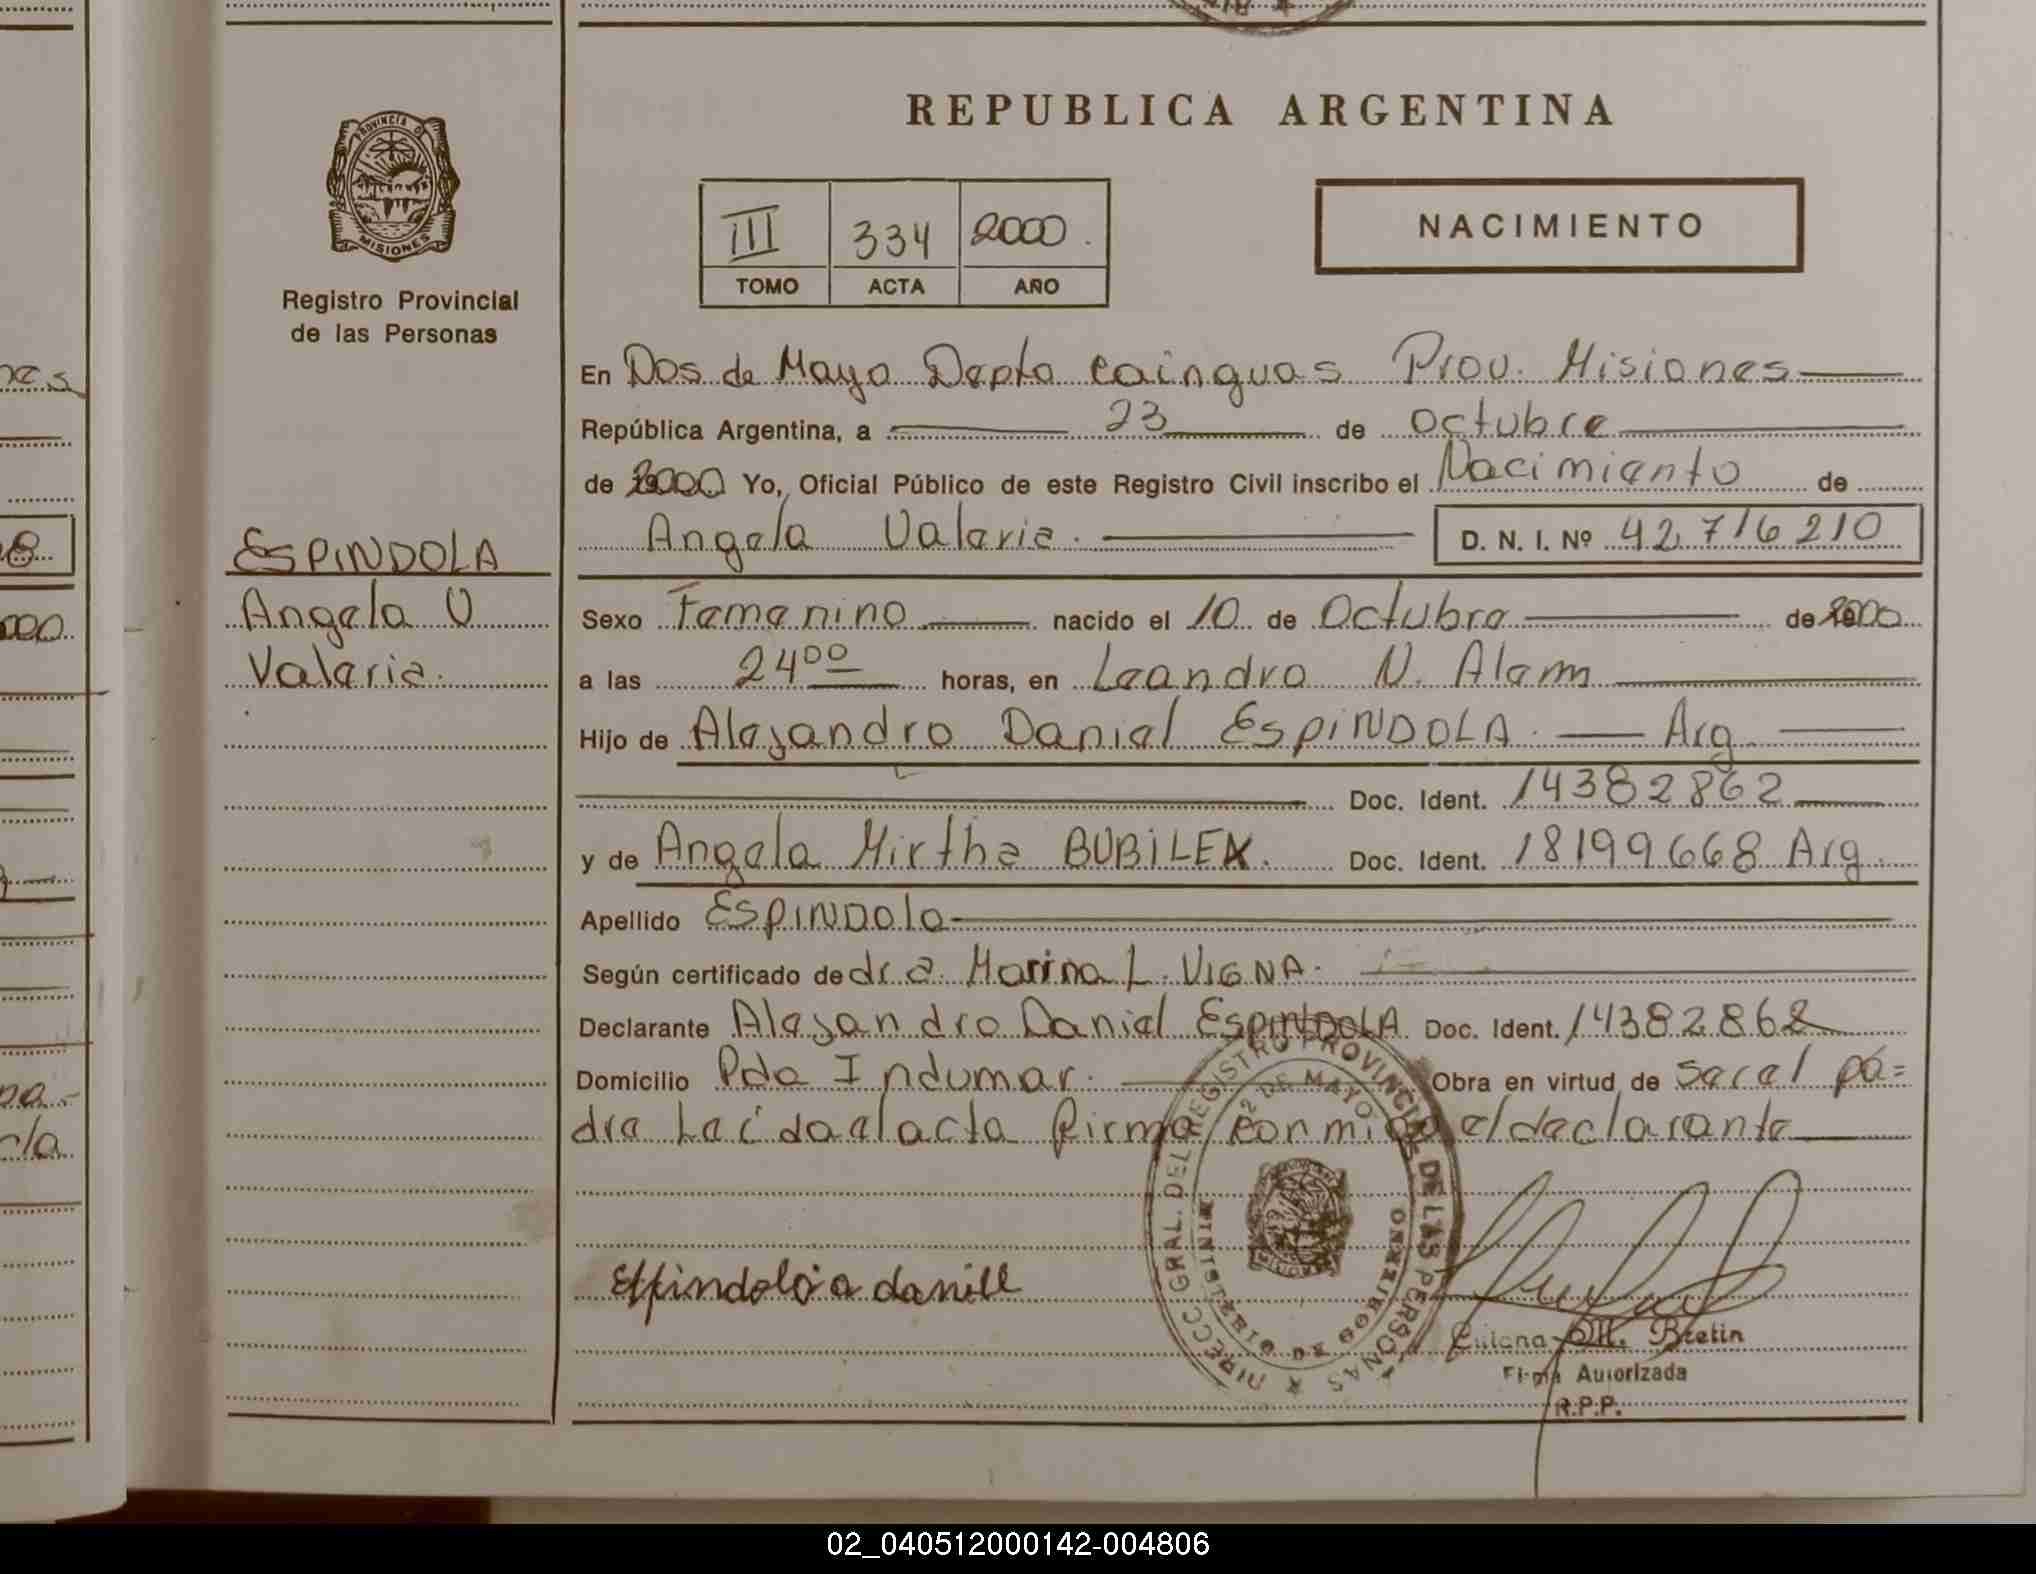 REPUBLICA ARGENTINA
PROVINCIA D
MISIONES
Registro Provincial
de las Personas
III 334 2000
TOMO ACTA AÑO
NACIMIENTO
En Dos de Mayo Depto cainguas Prov. Misiones
República Argentina, a 23 de octubre
de 2000 Yo, Oficial Público de este Registro Civil inscribo el Nacimiento de
Angela Valeria. D. N. I. Nº 42.716210
ESPINDOLA
Angela V
Valeria.
Sexo Femenino nacido el 10 de Octubre de 2000
a las 24 00 horas, en Leandro N. Alem
Hijo de Alejandro Daniel ESPINDOLA. Arg
Doc. Ident. 14382862
y de Angela Mirtha BUBILEK. Doc. Ident. 18199668 Arg.
Apellido ESPINDOLA
Según certificado de dr.a. Marina L. VIGNA.
Declarante Alejandro Daniel ESPINDOLA Doc. Ident. 14382862
Domicilio Pdo Indumar. Obra en virtud de ser el pa=
dre Leída el acta firma conmigo el declarante
DIRECC GRAL. DEL REGISTRO PROVINCIAL DE LAS PERSONAS
2 DE MAYO
MINISTERIO DE GOBIERNO
Espindola a daniel
M. Bretin
Firma Autorizada
R.P.P.
02_040512000142-004806